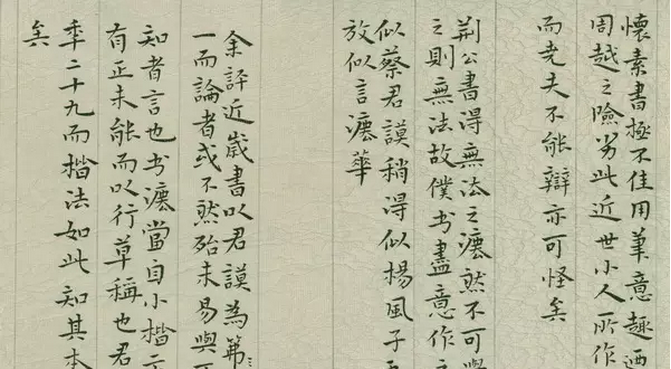 懷素書極不佳用筆意趣迺
周越之險劣此近世小人所作
而尭夫不能辯亦可怪矣
荊公書得無法之灋然不可學
之則無法故僕书盡意作之
似蔡君謨稍得似楊風子
放似言灋華
余評近歲書以君謨為第
一而論者或不然殆未易與
知者言也书灋當自小楷
有正未能而以行草稱也君
季二十九而楷法如此知其本
矣